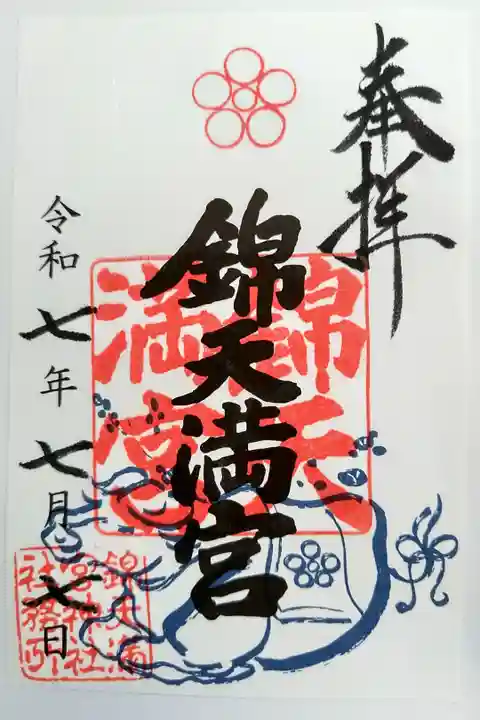 奉拝
錦天満宮
令和七年七月七日
錦天
満宮
錦天満
宮神社
社務所